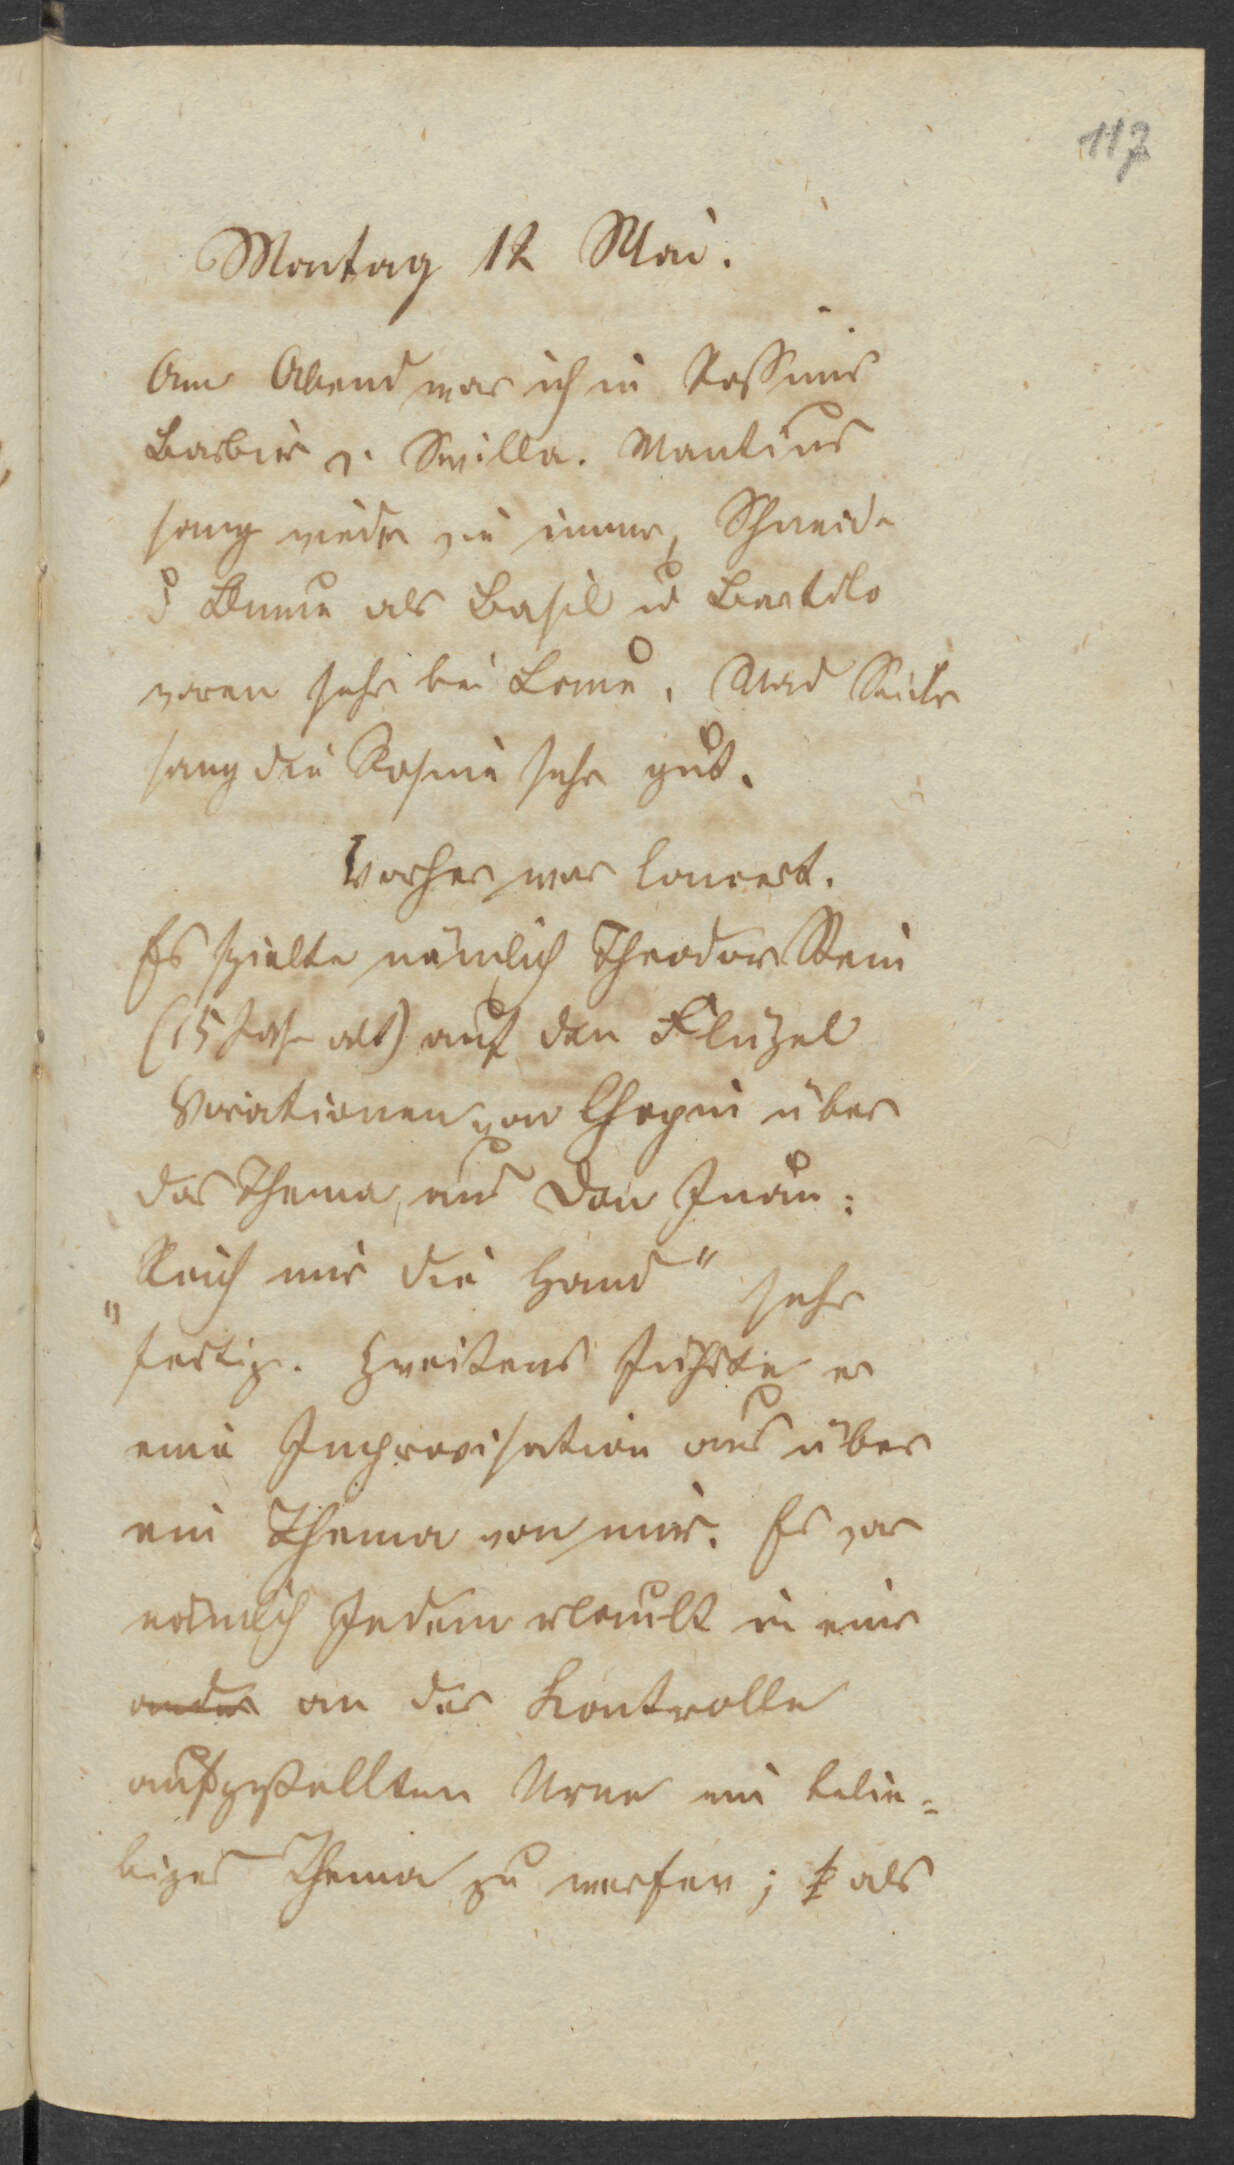 117
Montag 12 Mai.
Am Abend war ich in Rossinis
Barbier v. Sevilla. Mantius
sang wieder wie immer, Schneider
u als Basil und Bartolo
waren sehr bei Laune. Mad Seidler
sang die Rosine sehr gut.
Vorher war Concert.
Es spielte nämlich Theodor Stein
(15 Jahr alt) auf den Flügel
Variationen von Chopin über
das Thema, aus Don Juan:
„Reich mir die Hand" sehr
fertig. Zweitens führte er
eine Improvisation aus über
ein Thema von mir. Es war
nämlich Jedem erlaubt in eine
ander an der Kontrolle
aufgestellten Urne ein belie=
biges Thema zu werfen; als